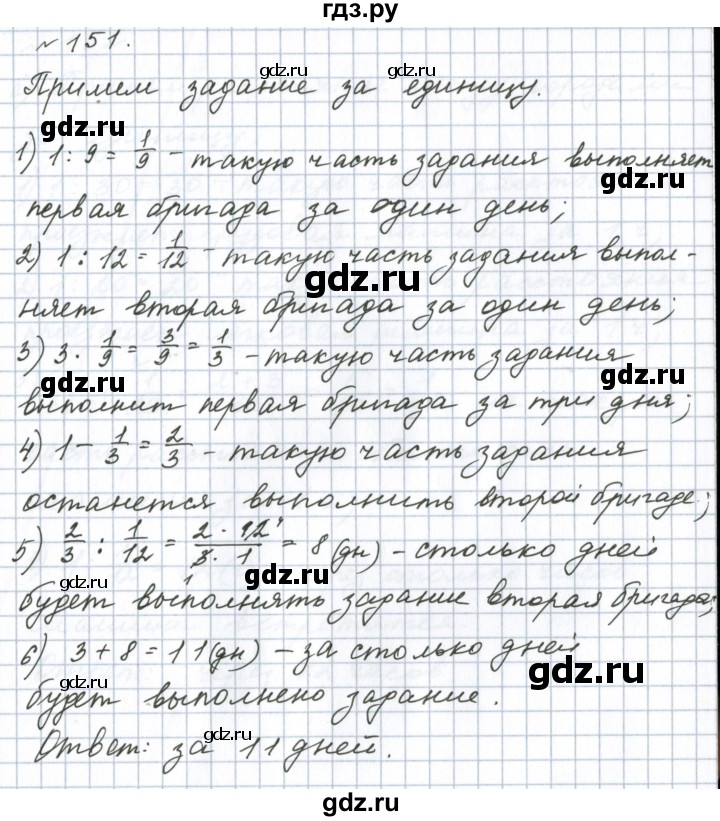 гдз.ру
№ 151.
gdz.ru
Примем задание за единицу.
gdz.ru
1) 1 : 9 = 1/9 - такую часть задания выполняет
gdz.ru
первая бригада за один день;
2) 1 : 12 = 1/12 - такую часть задания выпол-
gdz.ru
няет вторая бригада за один день;
3) 3 · 1/9 = 3/9 = 1/3 - такую часть задания
gdz.ru gdz.ru
выполнит первая бригада за три дня;
4) 1 - 1/3 = 2/3 - такую часть задания
gdz.ru gdz.ru
останется выполнить второй бригаде;
5) 2/3 : 1/12 = 2 · 12 4/3 · 1 1 = 8 (дн) - столько дней
gdz.ru
будет выполнять задание вторая бригада;
6) 3 + 8 = 11 (дн) - за столько дней
gdz.ru gdz.ru
будет выполнено задание.
gdz.ru gdz.ru
Ответ: за 11 дней.
gdz.ru